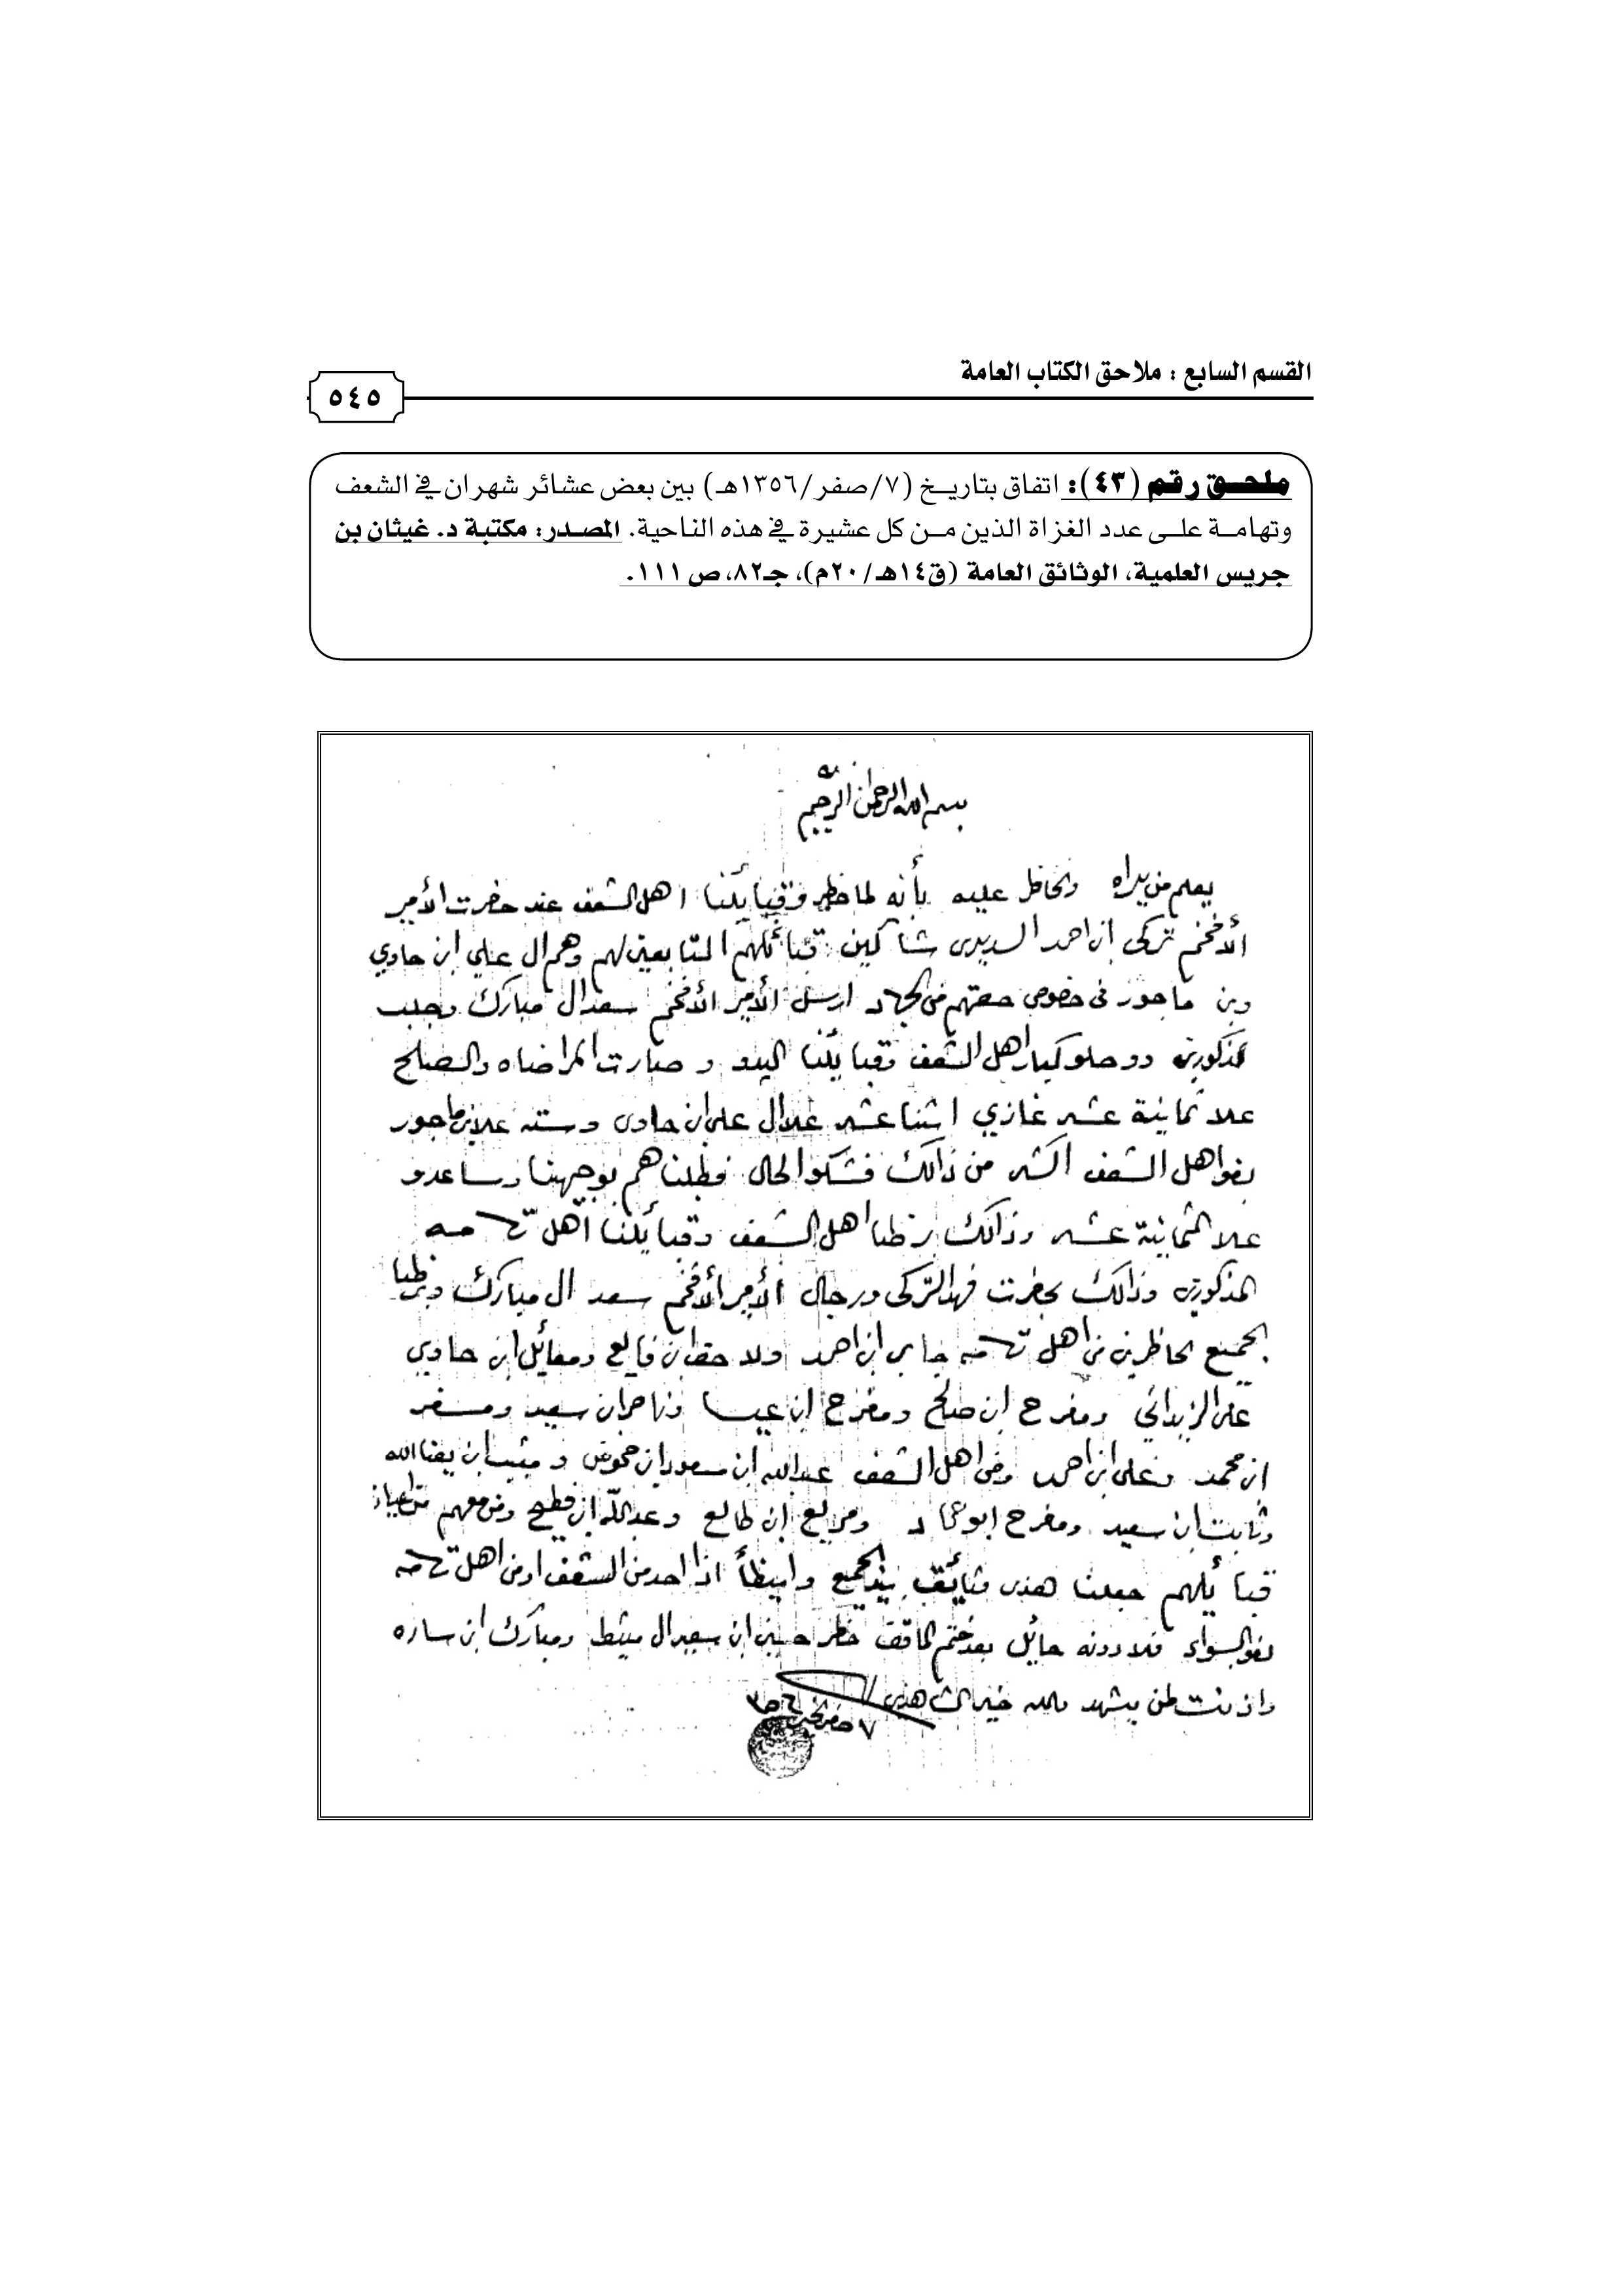 القسم السابع : ملاحق الكتاب العامة
٥٤٥
ملحق رقم (٤٣): اتفاق بتاريخ (٧/صفر/١٣٥٦هـ) بين بعض عشائر شهران في الشعف
وتهامة على عدد الغزاة الذين من كل عشيرة في هذه الناحية. المصدر: مكتبة د. غيثان بن
جريس العلمية، الوثائق العامة (ق١٤هـ/٢٠م)، جـ٨٢، ص ١١١.
بسم الله الرحمن الرحيم
يعلم من يراه عليه بأنه لما وقبائلنا اهل الشعف عند حضرت الأمير
الأفخم تركي ابن احمد السديري شاكين قبائلهم التابعين لهم وهم ال علي ابن حاوي
وبن ماجور في خصوص حقتهم من الجهاد ارسل الأمير الأفخم سعد ال مبارك وجلب
المذكورين ووصلو كبار اهل الشعف وقبائلنا اليه و صارت المراضاه والصلح
علا ثمانية عشر غازي اثنا عشر علا ال علي ابن حاوي وسته علا بن ماجور
اهل الشعف اكثر من ذالك فشكوا الحال بوجيهنا وساعدو
علا الثمانية عشر وذالك برظا اهل الشعف وقبائلنا اهل تهامه
المذكورين وذالك بحظرت فهد التركي ورجال الأمير الأفخم سعد ال مبارك وبرظا
الجميع الحاظرين من اهل تهامه جابر ابن احمد ابن حاوي
علي الزيداني ومفرح ابن صالح ومفرح ابن وناصر ابن سعيد ومسفر
ابن محمد وعلي ابن احمد ومن اهل الشعف عبدالله ابن سعود ابن
وثابت ابن سعيد ومفرح ابن طالع وعبدالله ابن ومن معهم
قبائلهم جعلنا هذي بيد الجميع وايظاً اذا احد من الشعف او من اهل تهامه
فلا دونه حايل حظر حسين ابن سعيد ال مشيط ومبارك ابن ساره
يشهد بالله هذي
٧ صفر ٣٥٦